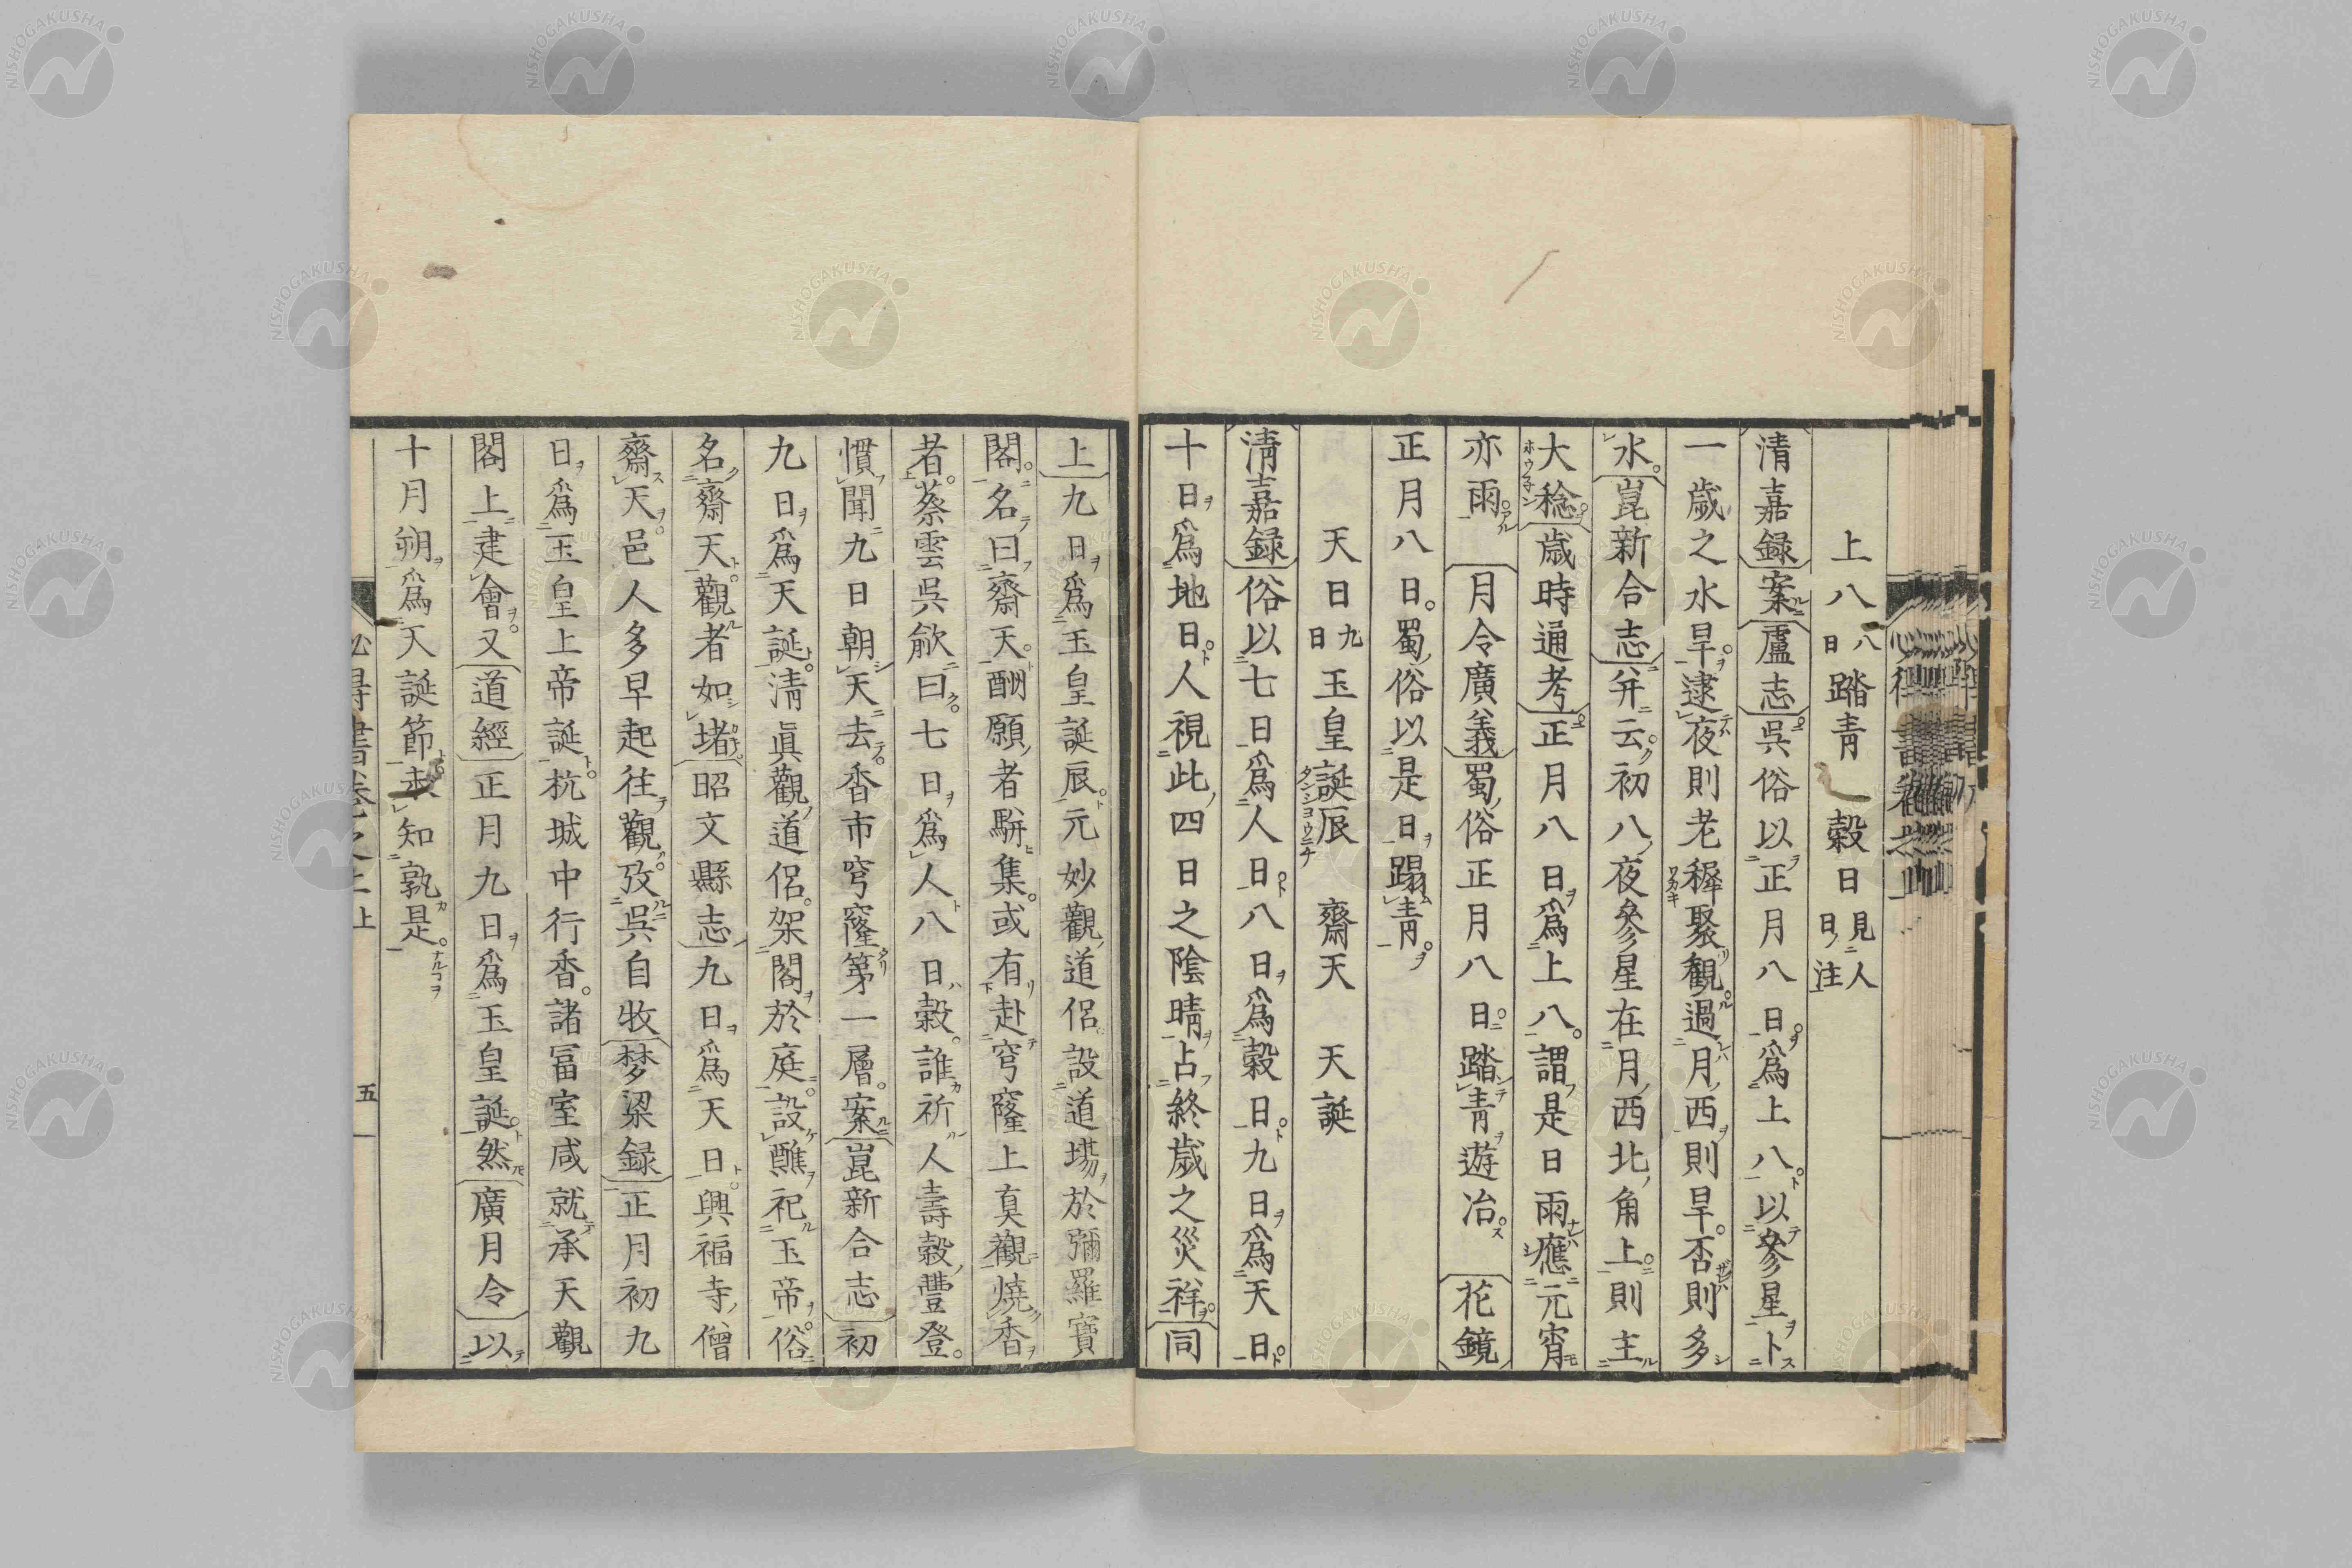 上八 八日 踏青 穀日 見人日注
清嘉録案盧志吳俗以正月八日爲上八以參星卜
一歲之水旱逮夜則老穉聚觀過月西則旱否則多
水崑新合志并云初八夜參星在月西北角上則主
大稔歲時通考正月八日爲上八謂是日雨應元宵
亦雨 月令廣義蜀俗正月八日踏青遊冶 花鏡
正月八日蜀俗以是日蹋青
天日 九日 玉皇誕辰 齋天 天誕
清嘉録俗以七日爲人日八日爲穀日九日爲天日
十日爲地日人視此四日之陰晴占終歲之災祥同
上九日爲玉皇誕辰元妙觀道侶設道場於彌羅寶
閣名曰齋天酬願者駢集或有赴穹窿上真觀燒香
者蔡雲吳歈曰七日爲人八日穀誰祈人壽穀豐登
慣聞九日朝天去香市穹窿第一層案崑新合志初
九日爲天誕清眞觀道侶架閣於庭設醮祀玉帝俗
名齋天觀者如堵昭文縣志九日爲天日興福寺僧
齋天邑人多早起往觀攷吳自牧夢梁録正月初九
日爲玉皇上帝誕杭城中行香諸冨室咸就承天觀
閣上建會又道經正月九日爲玉皇誕然廣月令以
十月朔爲天誕節未知孰是
五
NISHOGAKUSHA